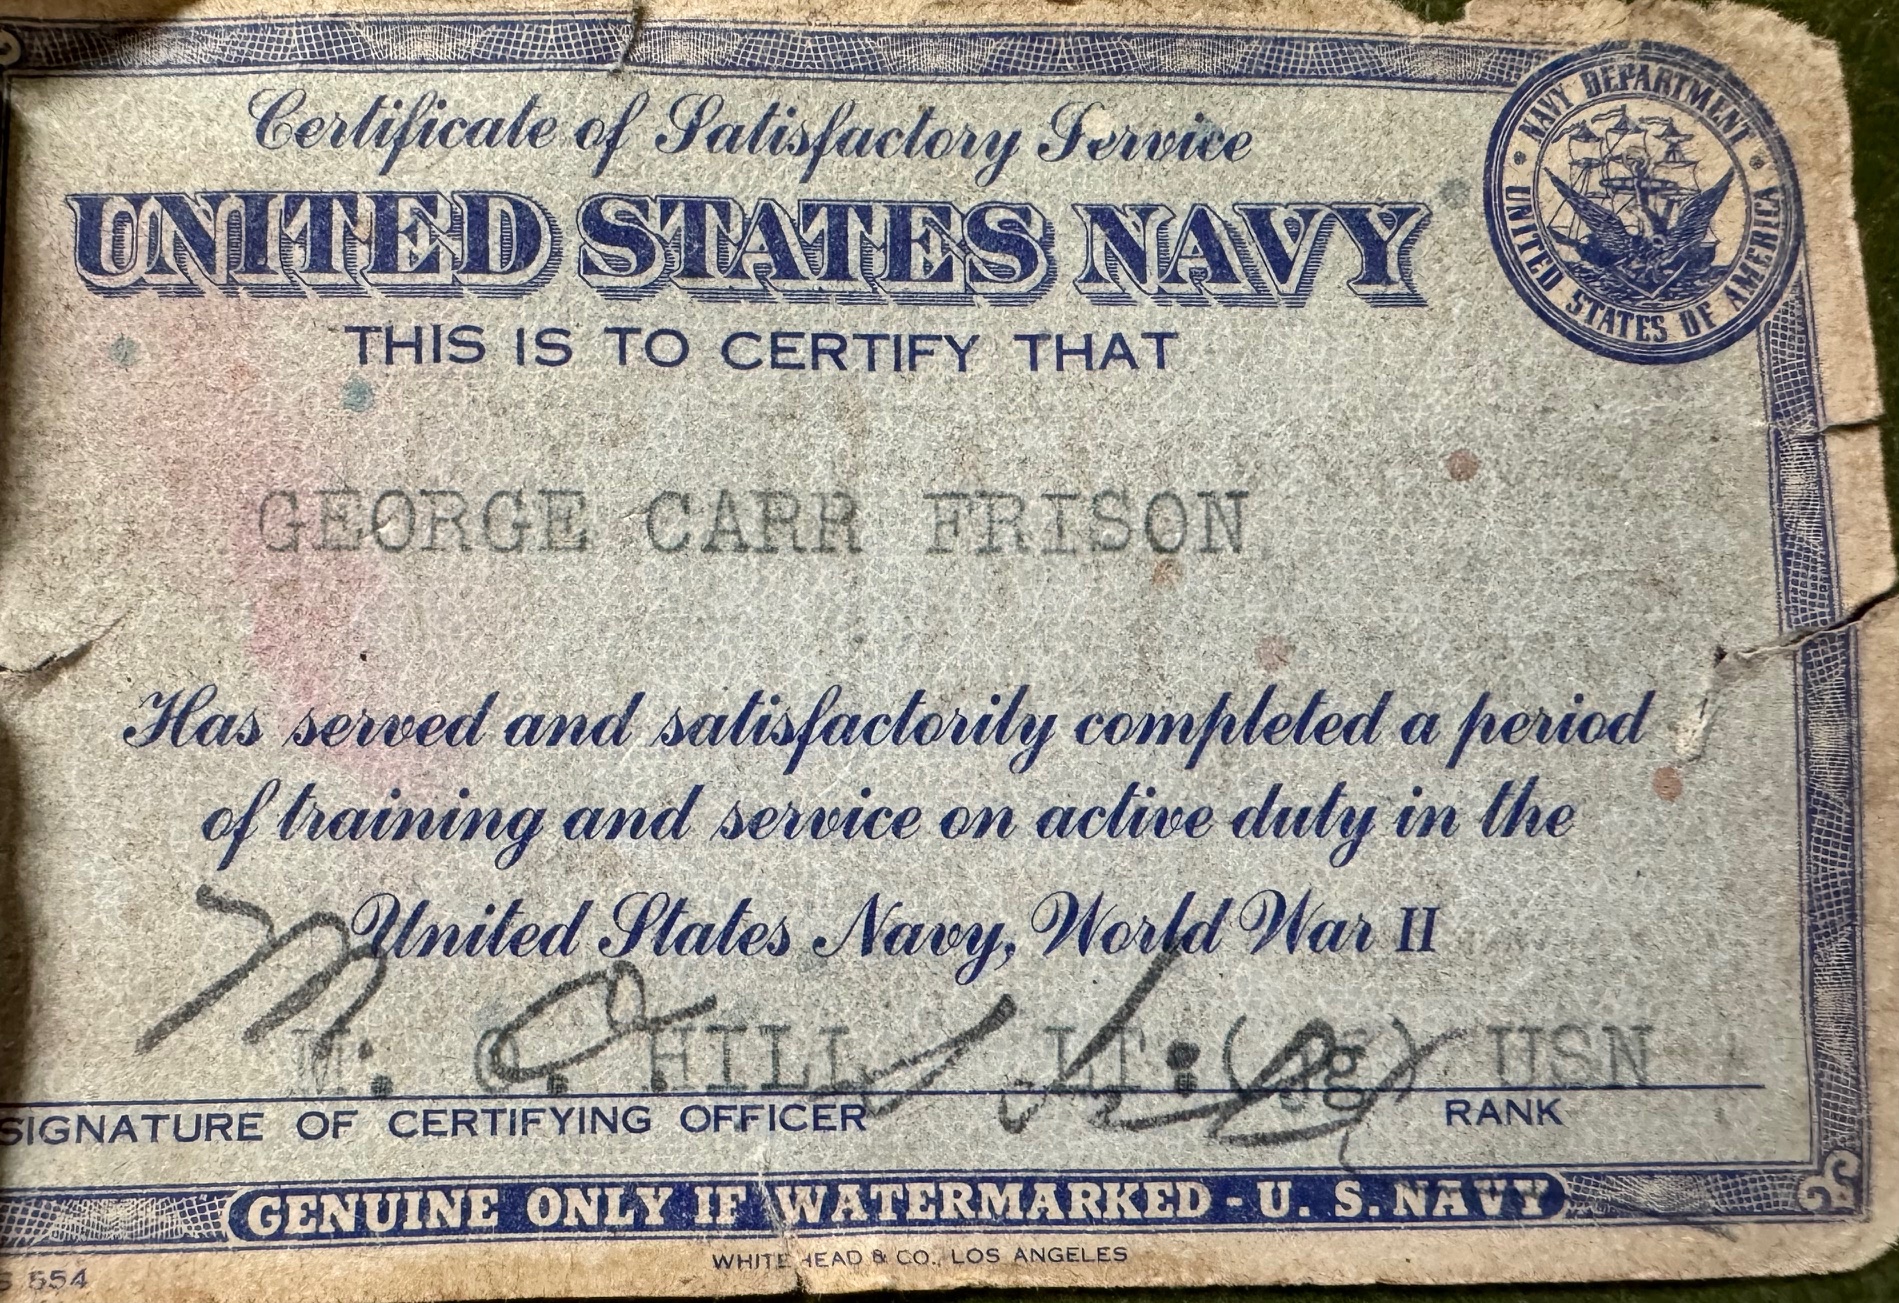 Certificate of Satisfactory Service
NAVY DEPARTMENT
UNITED STATES OF AMERICA
UNITED STATES NAVY
THIS IS TO CERTIFY THAT
GEORGE CARR FRISON
Has served and satisfactorily completed a period
of training and service on active duty in the
United States Navy, World War II
M. O. HILL LT.(jg) USN
SIGNATURE OF CERTIFYING OFFICER RANK
GENUINE ONLY IF WATERMARKED - U. S. NAVY
WHITEHEAD & CO., LOS ANGELES
554